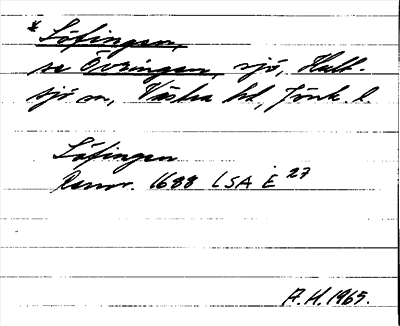 *Löfingen,
se Övringen, sjö, Hult-
sjö sn, Västra hd, Jönk. l.
Löfingen
Rannr. 1688 LSA E 27
A.H. 1965.